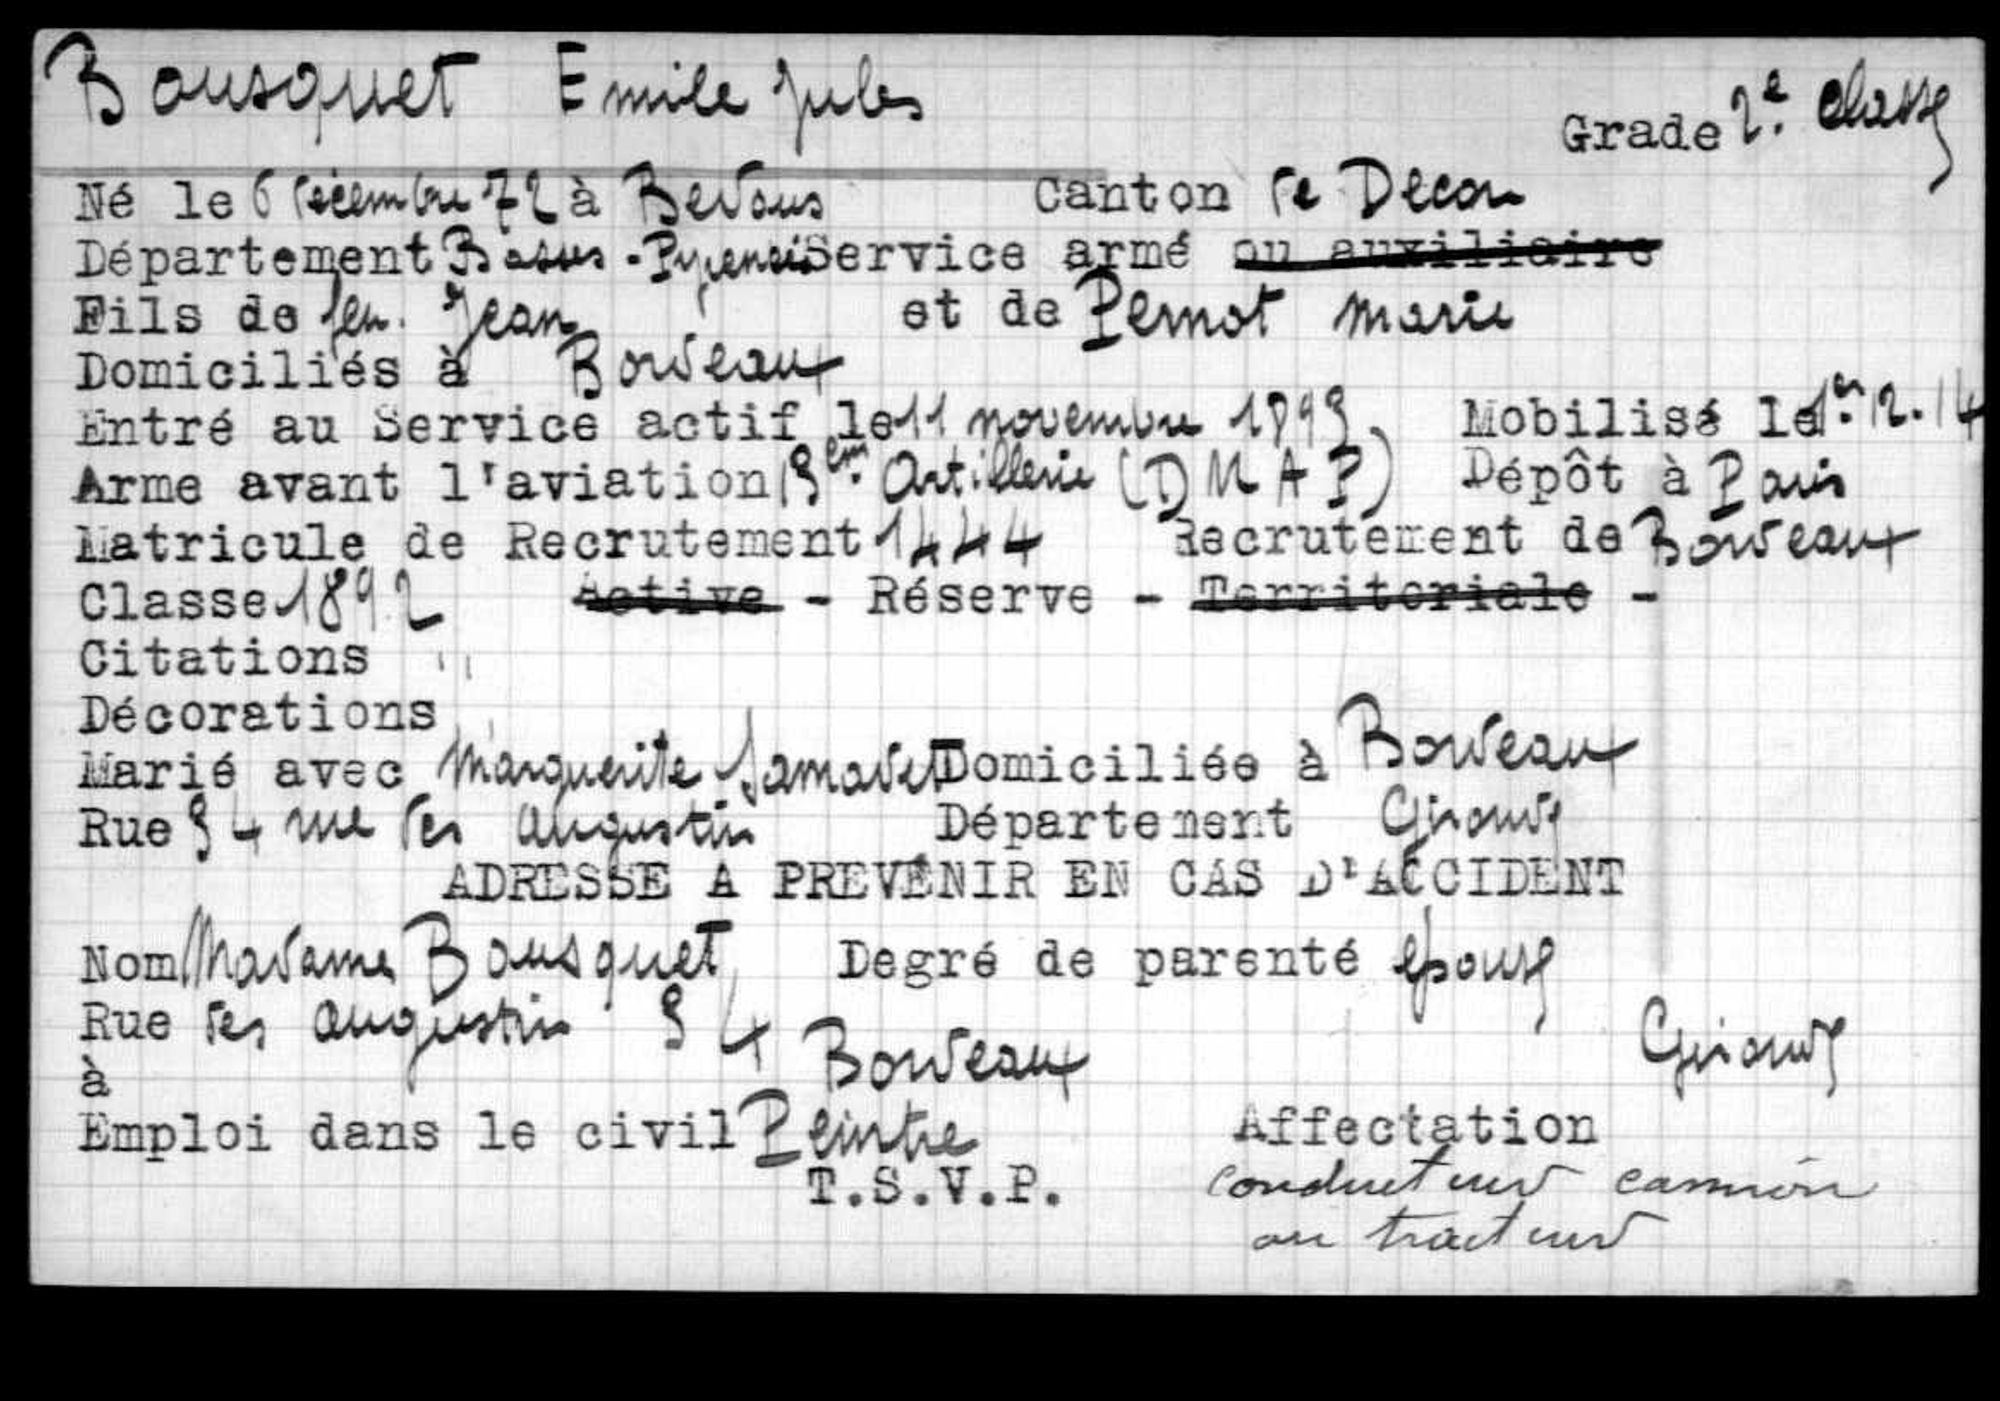 Bousquet Emile Jules
Grade 2e. classe
Né le 6 décembre 72 à Bedous Canton de Decou
Département Basses-Pyrenées Service armé ou auxiliaire
Fils de feu. Jean et de Pernot Marie
Domiciliés à Bordeaux
Entré au Service actif le 11 novembre 1893. Mobilisé le 1er. 12. 14
Arme avant l'aviation 13em. Artillerie (DMAP) Dépôt à Paris
Matricule de Recrutement 1444 Recrutement de Bordeaux
Classe 1892 Active - Réserve - Territoriale -
Citations
Décorations
Marié avec Marguerite Domiciliée à Bordeaux
Rue 34 rue des Augustins Département Gironde
ADRESSE A PREVENIR EN CAS D'ACCIDENT
Nom Madame Bousquet Degré de parenté épouse
Rue des Augustins 34
à Bordeaux Gironde
Emploi dans le civil Peintre Affectation
T.S.V.P. conducteur camion
ou tracteur